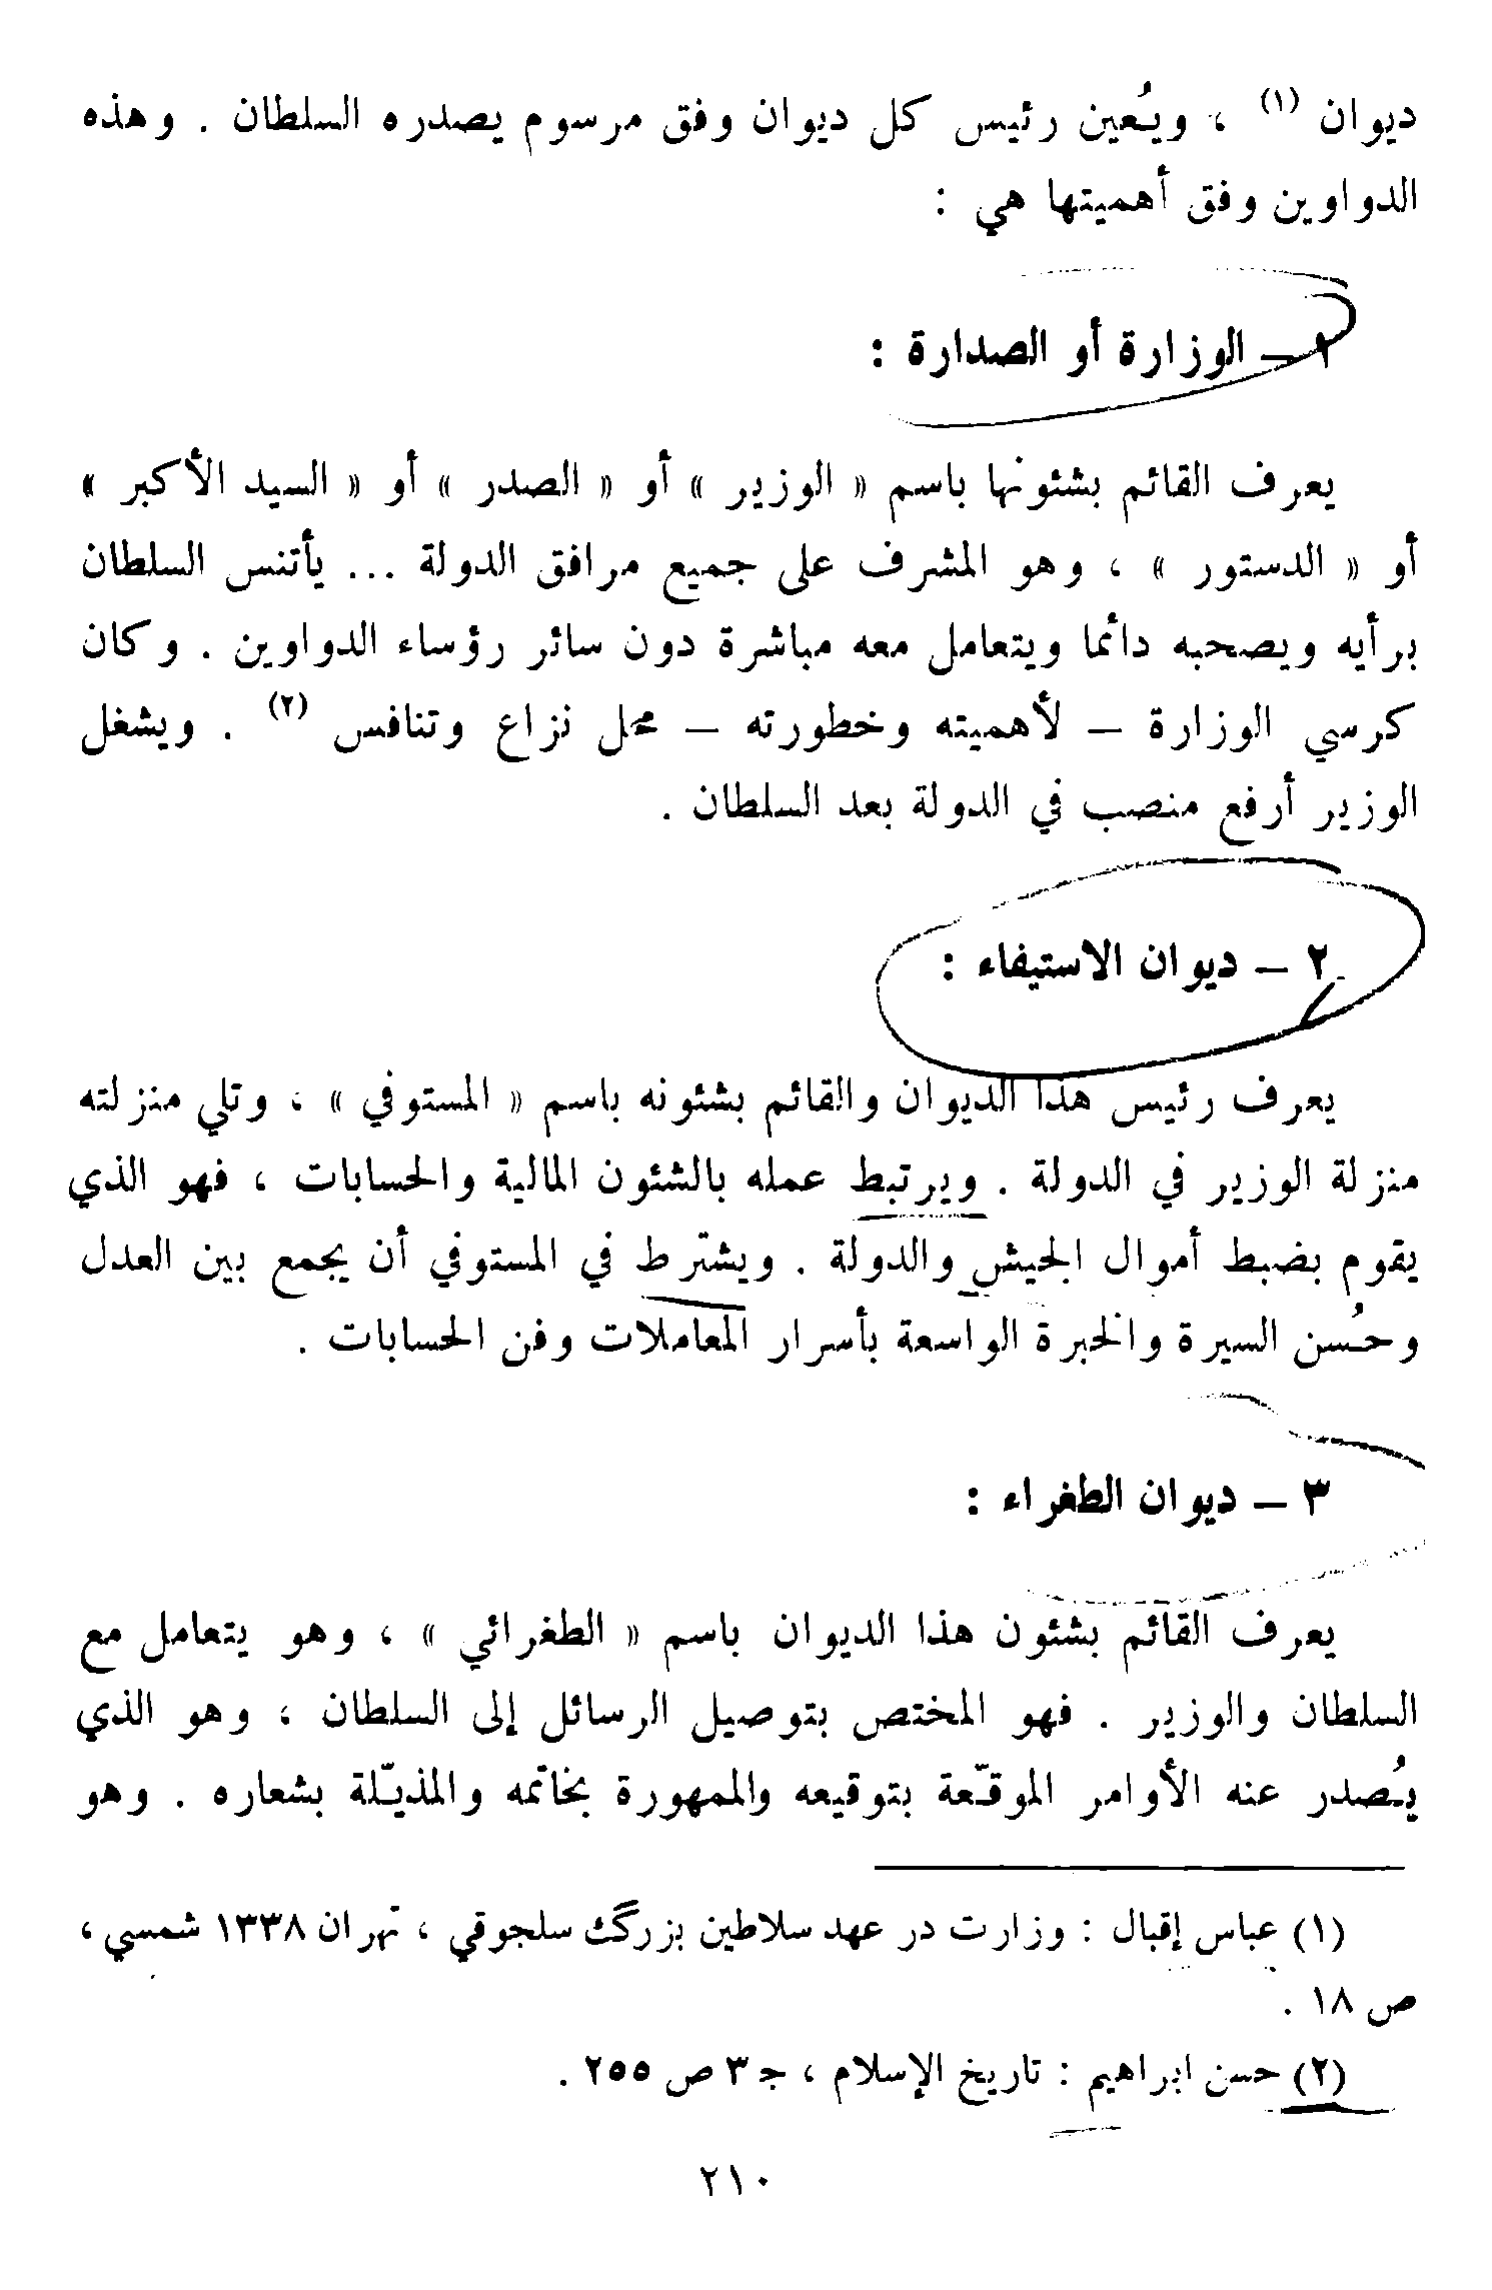 ديوان (١) ، ويُعين رئيس كل ديوان وفق مرسوم يصدره السلطان . وهذه
الدواوين وفق أهميتها هي :
١ – الوزارة أو الصدارة :
يعرف القائم بشئونها باسم « الوزير » أو « الصدر » أو « السيد الأكبر »
أو « الدستور » ، وهو المشرف على جميع مرافق الدولة ... يأتنس السلطان
برأيه ويصحبه دائما ويتعامل معه مباشرة دون سائر رؤساء الدواوين . وكان
كرسي الوزارة – لأهميته وخطورته – محل نزاع وتنافس (٢) . ويشغل
الوزير أرفع منصب في الدولة بعد السلطان .
٢ – ديوان الاستيفاء :
يعرف رئيس هذا الديوان والقائم بشئونه باسم « المستوفي » ، وتلي منزلته
منزلة الوزير في الدولة . ويرتبط عمله بالشئون المالية والحسابات ، فهو الذي
يقوم بضبط أموال الجيش والدولة . ويشترط في المستوفي أن يجمع بين العدل
وحُسن السيرة والخبرة الواسعة بأسرار المعاملات وفن الحسابات .
٣ – ديوان الطغراء :
يعرف القائم بشئون هذا الديوان باسم « الطغرائي » ، وهو يتعامل مع
السلطان والوزير . فهو المختص بتوصيل الرسائل إلى السلطان ، وهو الذي
يُصدر عنه الأوامر الموقّعة بتوقيعه والممهورة بخاتمه والمذيّلة بشعاره . وهو
(١) عباس إقبال : وزارت در عهد سلاطين بزرگ سلجوقي ، تهران ١٣٣٨ شمسي ،
ص ١٨ .
(٢) حسن ابراهيم : تاريخ الإسلام ، جـ ٣ ص ٢٥٥ .
٢١٠